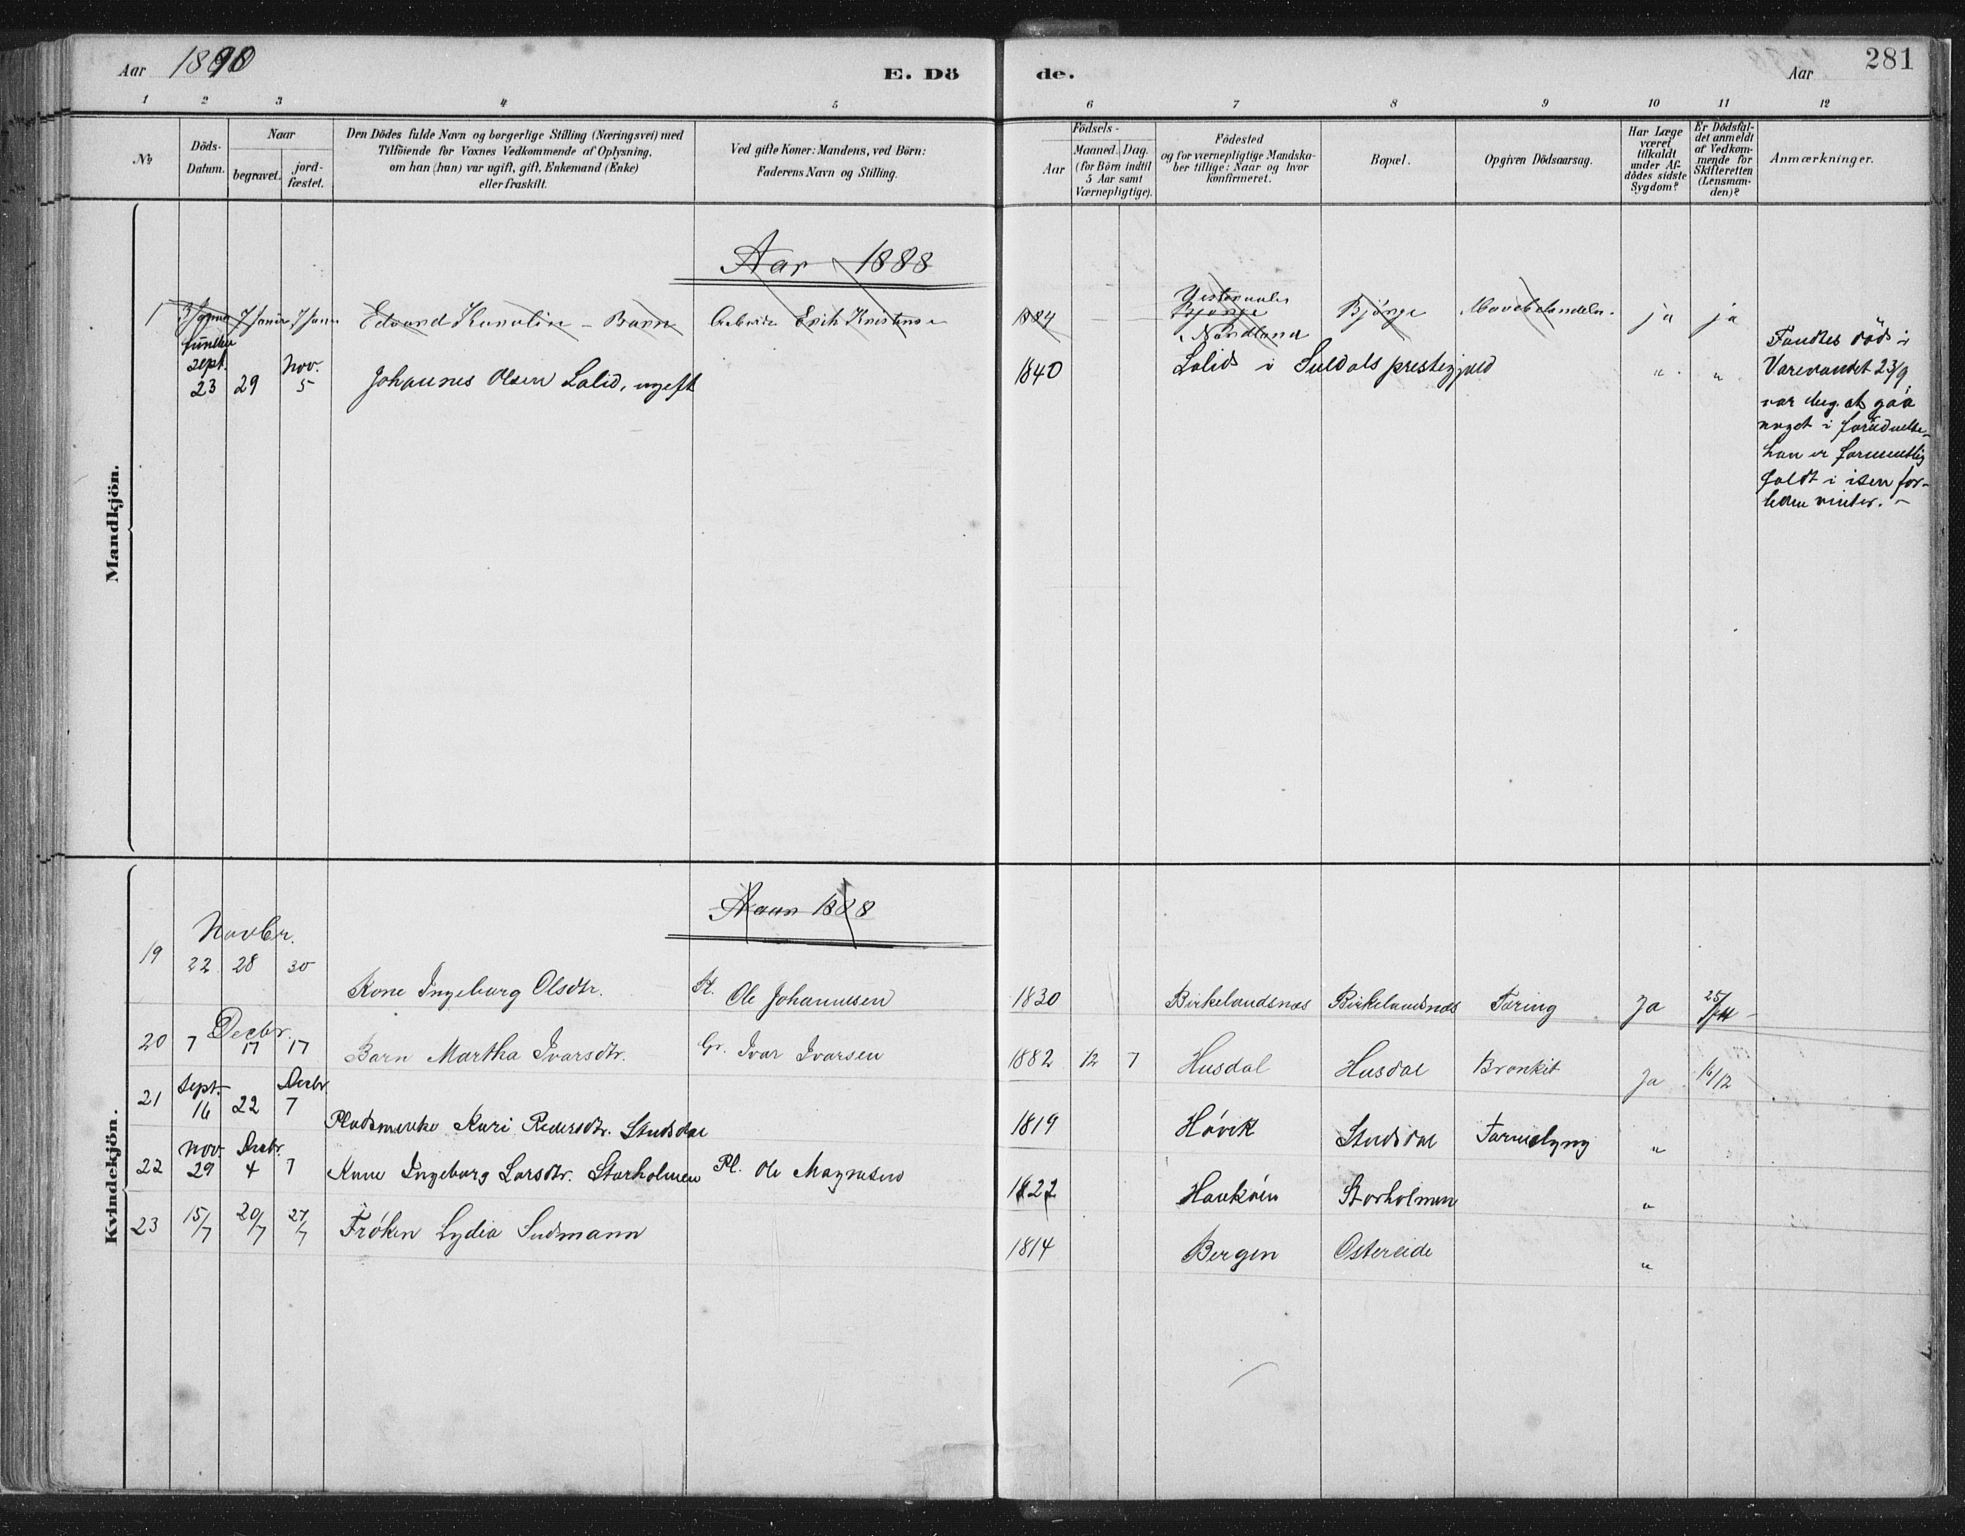 Aar 1890 E. Dö de. Aar 281
1 2 3 4 5 6 7 8 9 10 11 12
No
Döds-Datum.
Naar
begravet.
jord-fæstet.
Den Dödes fulde Navn og borgerlige Stilling (Næringsvei) med
Tilföiende for Voxnes Vedkommende af Oplysning,
om han (hun) var ugift, gift, Enkemand (Enke)
eller fraskilt.
Ved gifte Koner: Mandens, ved Börn:
Faderens Navn og Stilling.
Födsels-
Aar
Maaned. Dag.
(for Börn indtil
5 Aar samt
Værnepligtige).
Födested
og for værnepligtige Mandska-
ber tillige: Naar og hvor
konfirmeret.
Bopæl.
Opgiven Dödsaarsag.
Har Læge
været
tilkaldt
under Af-
dödes sidste
Sygdom?
Er Dödsfal-
det anmeldt
af Vedkom-
mende for
Skifteretten
(Lensman-
den)?
Anmærkninger.
Mandkjön.
Aar 1888
1 7 Januar 7 Januar Edvard Karolin - Barn Erik Kristense 1884 Nordland Bjönge ja ja
funden
Sept. 23 29 Nov. 5 Johannes Olsen Lalid, ugift 1840 Lalid i Suldals prestegjeld " "
Fandtes död i
Varevandet 23/9
var beg. at gaa
noget i forraadnelse
han er formentlig
faldt i isen for-
leden vinter. -
Kvindekjön.
Aaar 1888
Novbr.
19 22 28 30 Kone Ingeborg Olsdtr. Ole Johannesen 1830 Birkelandsnæs Birkelandsnæs Tæring Ja 25/
Decbr.
20 7 17 17 Barn Martha Ivarsdtr. Gr. Ivar Ivarsen 1882 12 7 Husdal Husdal Bronkit Ja 16/12
21 Sept. 16 22 Decbr. 7 Pladsmenke Kari Pedersdtr. Studsdal 1819 Høvik Studsdal "
22 Nov. 29 Decbr. 4 7 Kone Ingeborg Larsdtr. Storholmen Pl. Ole Magnesen 1822 Haukøen Storholmen "
23 15/7 20/7 27/7 Frøken Lydia Sudmann 1814 Bergen Ostereide "